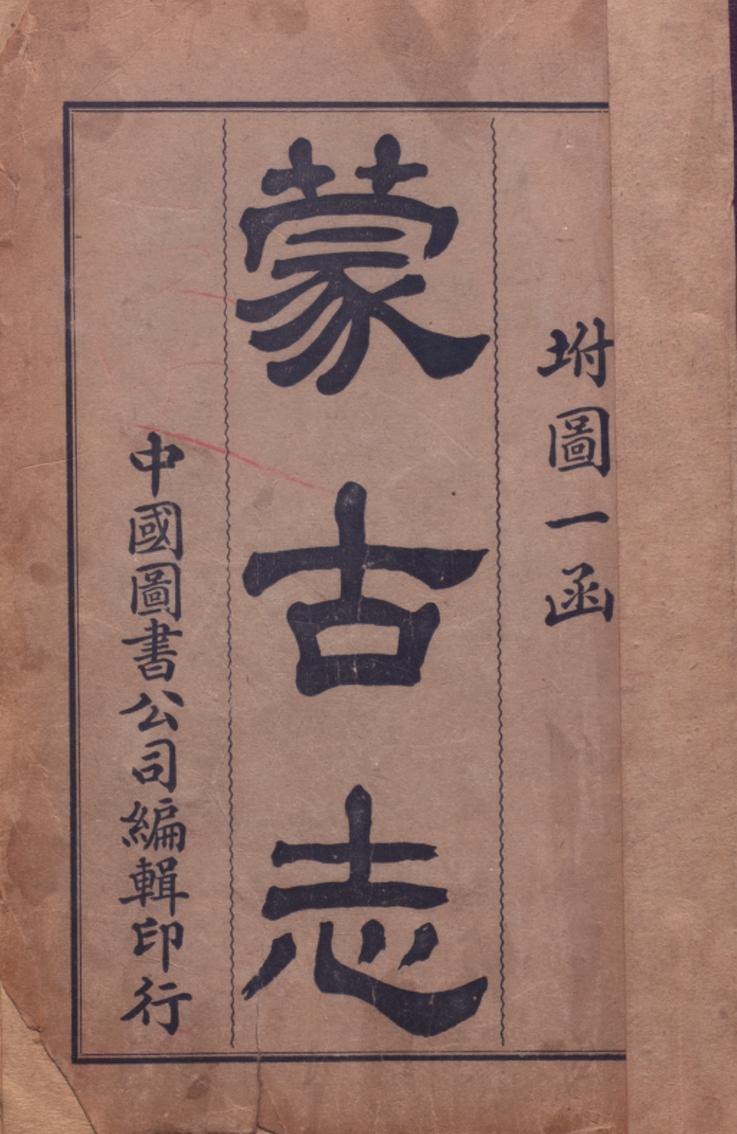 坿圖一函
蒙古志
中國圖書公司編輯印行